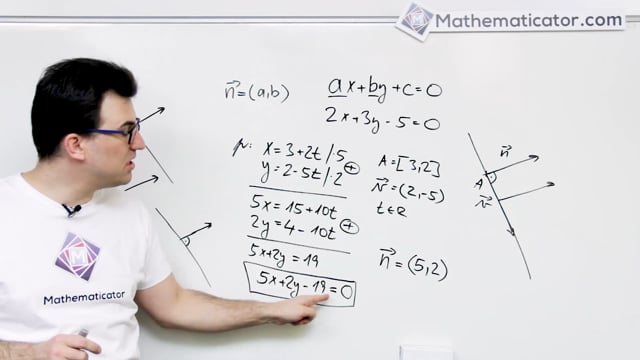 Mathematicator.com
n⃗=(a,b)
ax+by+c=0
2x+3y-5=0
p: x=3+2t /·5
y=2-5t /·2 ⊕
A=[3,2]
v⃗=(2,-5)
t∈R
5x=15+10t
2y=4-10t ⊕
5x+2y=19
5x+2y-19=0
n⃗=(5,2)
n⃗
A
v⃗
Mathematicator